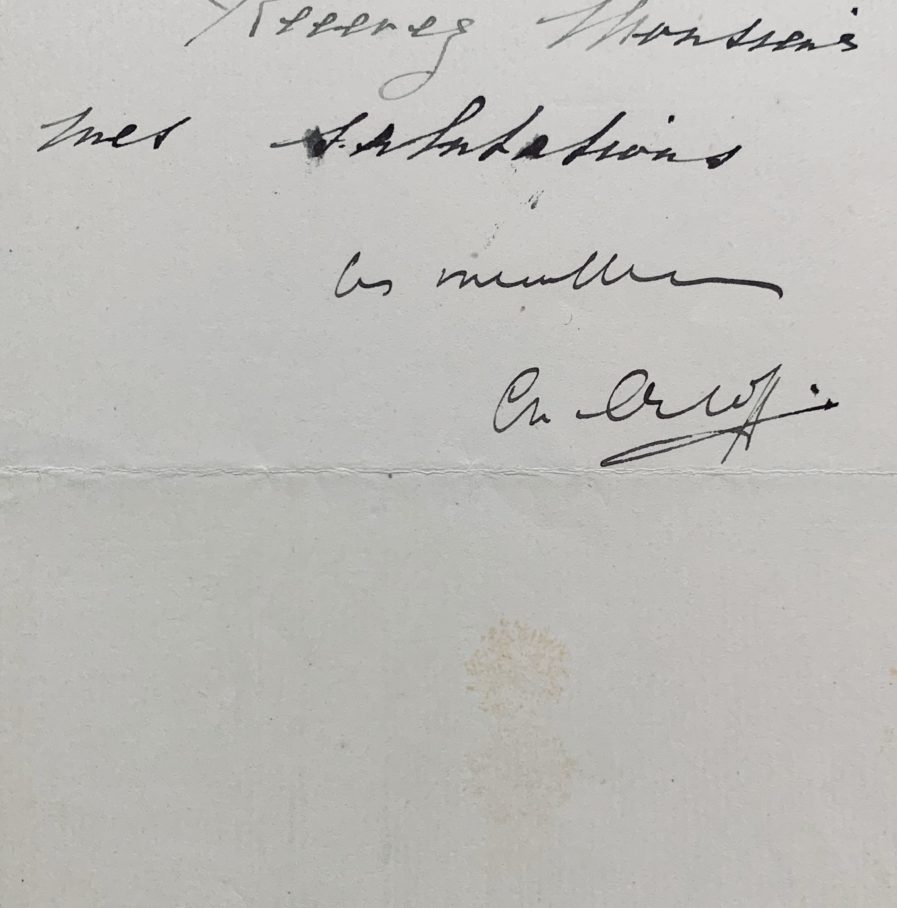 Recevez Monsieur
mes salutations
les meilleures
Ch. Orloff.